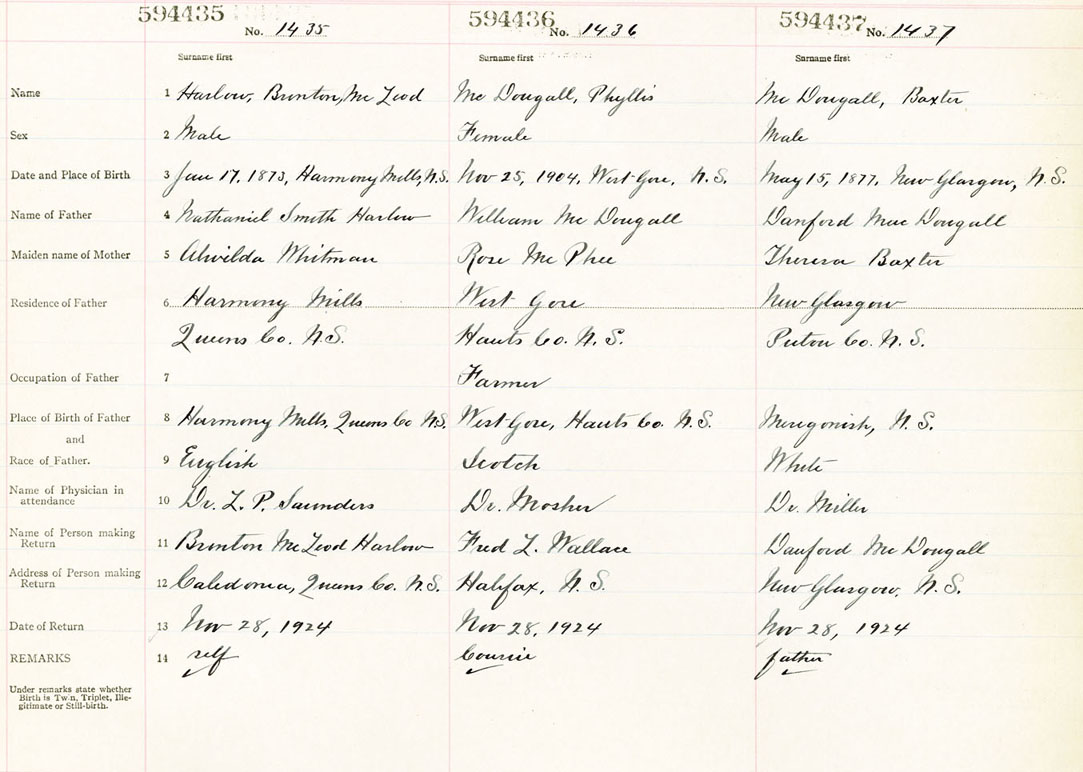 594435 594436 594437
No. 1435 No. 1436 No. 1437
Surname first Surname first Surname first
Name 1 Harlow, Brenton, Mc Leod Mc Dougall, Phyllis Mc Dougall, Baxter
Sex 2 Male Female Male
Date and Place of Birth 3 17, 1873, Harmony Mills, N.S. Nov 25, 1904, West Gore, N.S. May 15, 1877, New Glasgow, N.S.
Name of Father 4 Nathaniel Smith Harlow William Mc Dougall Danford Mac Dougall
Maiden name of Mother 5 Whitman Rose Mc Phee Theresa Baxter
Residence of Father 6 Harmony Mills West Gore New Glasgow
Queens Co. N.S. Hants Co. N.S. Pictou Co. N.S.
Occupation of Father 7 Farmer
Place of Birth of Father 8 Harmony Mills, Queens Co N.S. West Gore, Hants Co. N.S. Merigonish, N.S.
and
Race of Father. 9 English Scotch White
Name of Physician in
attendance 10 Dr. L. P. Saunders Dr. Mosher Dr. Miller
Name of Person making
Return 11 Brenton Mc Leod Harlow Fred L. Wallace Danford Mc Dougall
Address of Person making
Return 12 Caledonia, Queens Co. N.S. Halifax, N.S. New Glasgow, N.S.
Date of Return 13 Nov 28, 1924 Nov 28, 1924 Nov 28, 1924
REMARKS 14 self Cousin father
Under remarks state whether
Birth is Twin, Triplet, Ille-
gitimate or Still-birth.